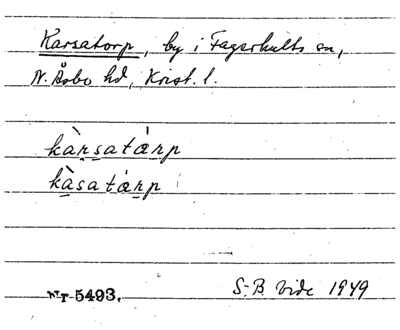 Karsatorp, by i Fagerhults sn,
N. Åsbo hd, Krist. l.
kàrsatárp
kàsatárp
NrT-5493. S-B. Vide 1949